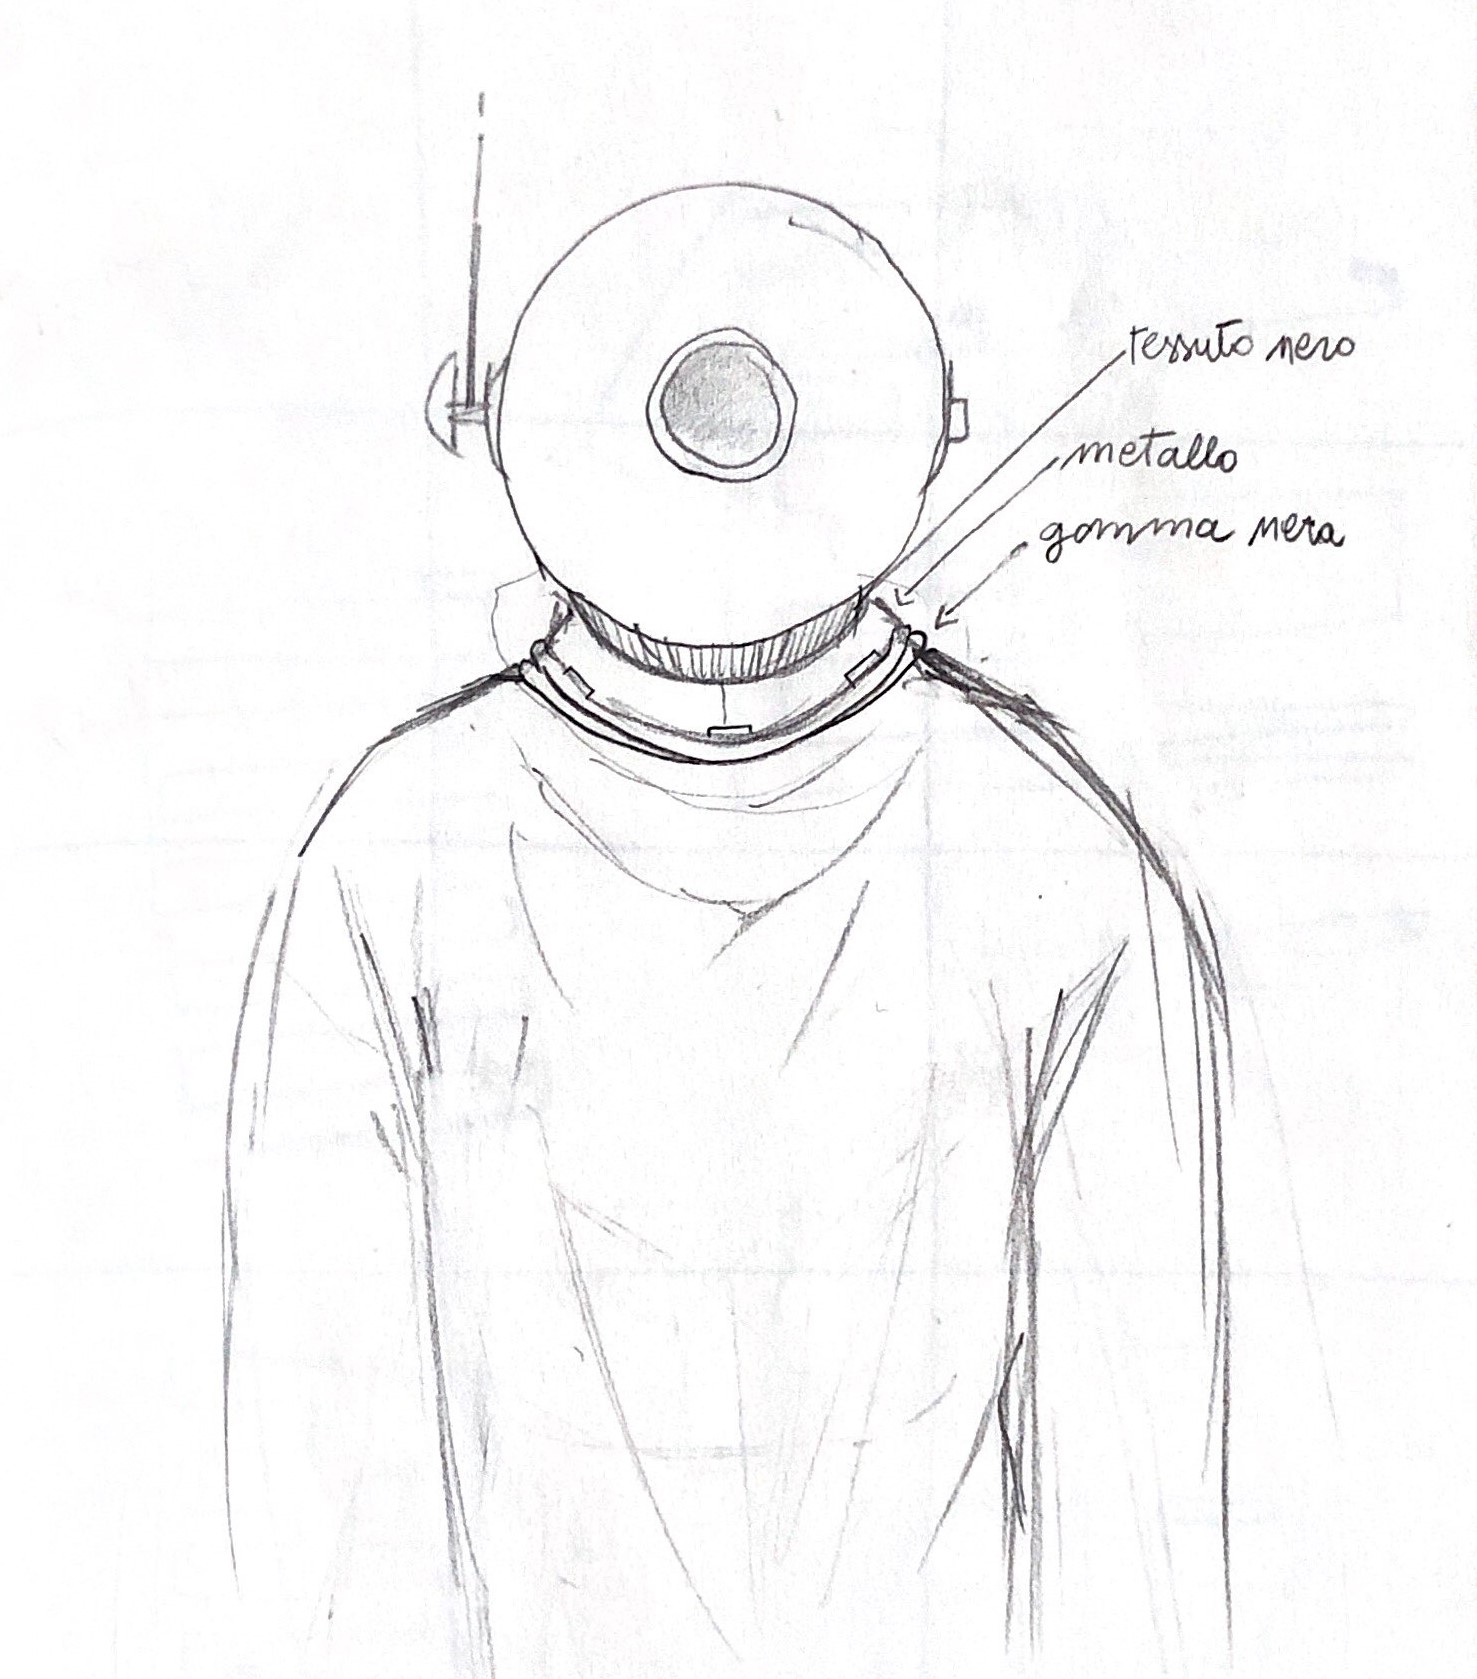 tessuto nero
metallo
gomma nera